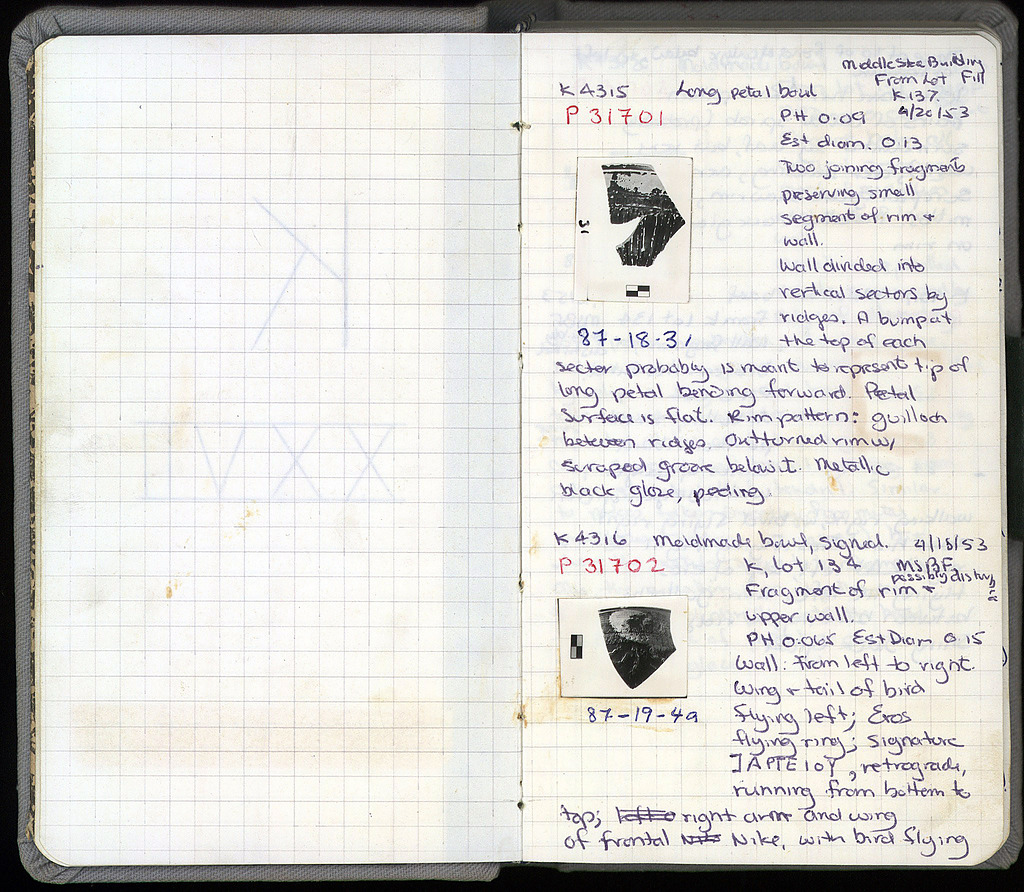 Middle Stoa Building
From Lot Fill
K 4315 Long petal bowl K 137
P 31701 PH 0.09 4/20/53
Est diam. 0.13
Two joining fragments
preserving small
segment of rim +
wall.
Wall divided into
vertical sectors by
ridges. A bump at
87-18-31 the top of each
sector probably is meant to represent tip of
long petal bending forward. Petal
surface is flat. Rim pattern: guilloch
between ridges. Outturned rim w/
scraped groove below it. Metallic
black glaze, peeling.
K 4316 Moldmade bowl, signed. 4/18/53
P 31702 K, lot 134 MSBF
possibly disturb
Fragment of rim +
upper wall.
PH 0.065 Est Diam 0.15
Wall: From left to right.
wing + tail of bird
87-19-4a flying left; Eros
flying ring; signature
]ΑΡΤΕΙΟΥ, retrograde,
running from bottom to
top; right arm and wing
of frontal Nike, with bird flying
31
K